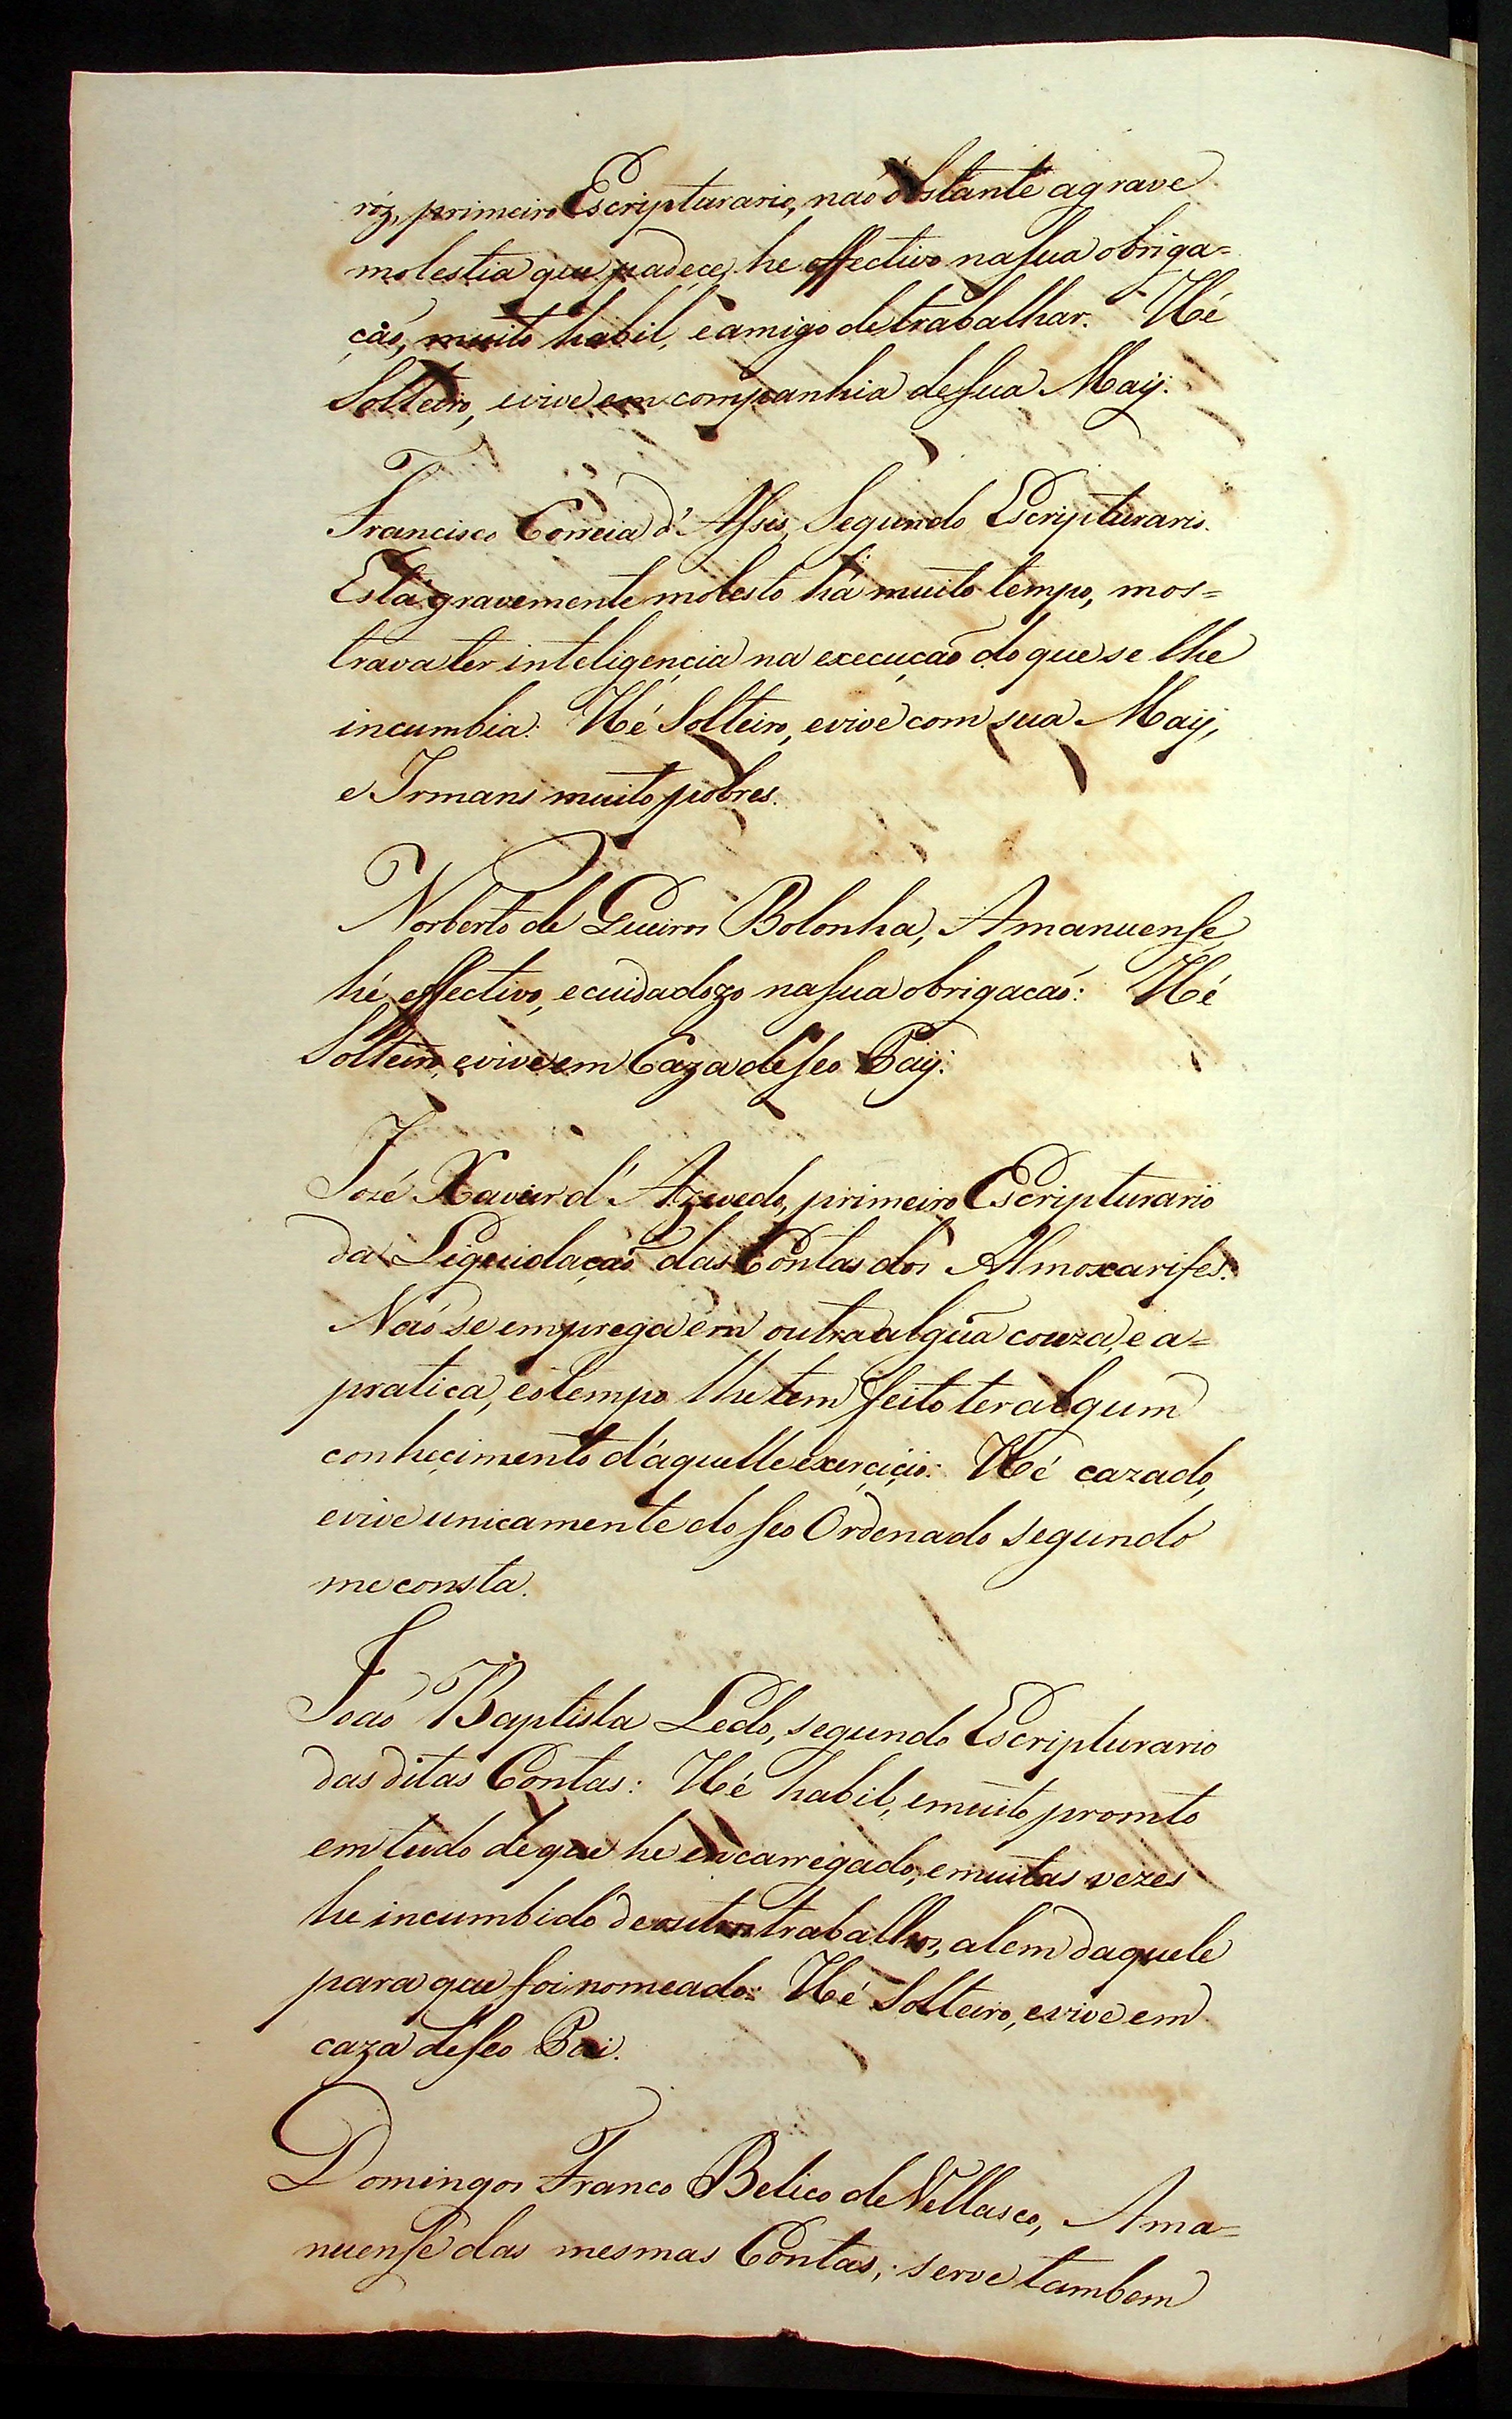 róz, primeiro Escripturario, naõ obstante a grave
molestia que padece, he effectivo na sua obriga=
çaõ, muito habil, e amigo de trabalhar. Hé
Solteiro, e vive em companhia de sua Maÿ.
Francisco Correia d'Assis, Segundo Escripturario.
Está gravemente molesto há muito tempo, mos=
trava ter inteligencia na execuçaõ do que se lhe
incumbia: Hé Solteiro, e vive com sua Maÿ,
e Irmans muito pobres.
Norberto de Queiros Bolonha, Amanuense,
hé effectivo, e cuidadozo na sua obrigacaõ: Hé
Solteiro, e vive em Caza de seo Paÿ.
Jozé Xavier d'Azevedo, primeiro Escripturario
da Liquidaçaõ das Contas dos Almoxarifes.
Naõ se emprega em outra algũa couza, e a=
pratica, e o tempo lhe tem feito ter algum
conhecimento d'aquelle exercicio: Hé cazado,
e vive unicamente do seo Ordenado segundo
me consta.
Joaõ Baptista Ledo, segundo Escripturario
das ditas Contas: Hé habil, e muito promto
em tudo de que he encarregado, e muitas vezes
he incumbido de outros trabalhos, alem daquele
para que foi nomeado: Hé Solteiro, e vive em
caza de seo Pai.
Domingos Franco Belico de Vellasco, Ama=
nuense das mesmas Contas, serve tambem